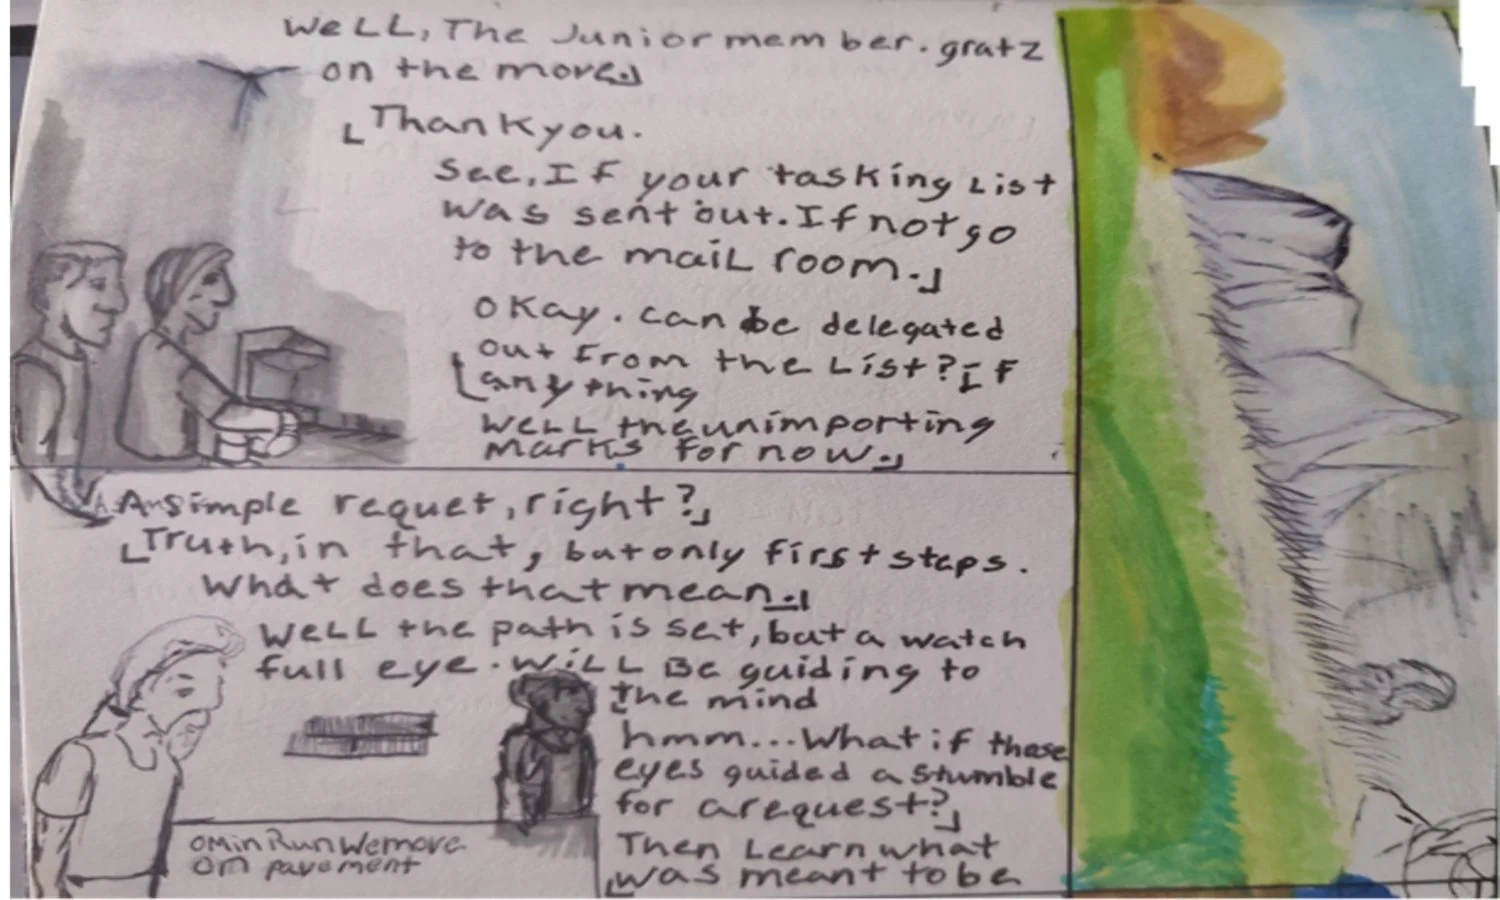 Well, The Junior member. gratz
on the more.
Thank you.
See, If your tasking List
was sent out. If not go
to the mail room.
Okay. can be delegated
out from the List? If
anything
Well the unimporting
marks for now.
A simple requet, right?
Truth, in that, but only first steps.
What does that mean.
Well the path is set, but a watch
full eye. Will Be guiding to
the mind
hmm...What if these
eyes guided a stumble
for a request?
Then Learn what
was meant to be
OMinRunWemove
on pavement